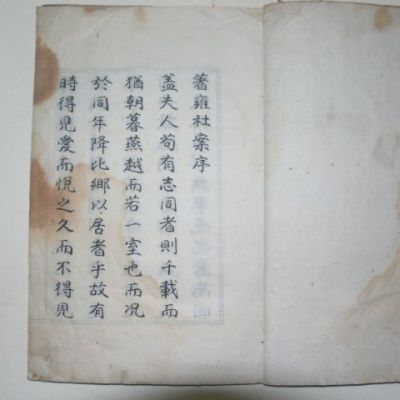 蓍雍社案序
盖夫人苟有志同者則千載而
猶朝暮燕越而若一室也而况
於同年降比郷以居者乎故有
時得見愛而悅之久而不得見